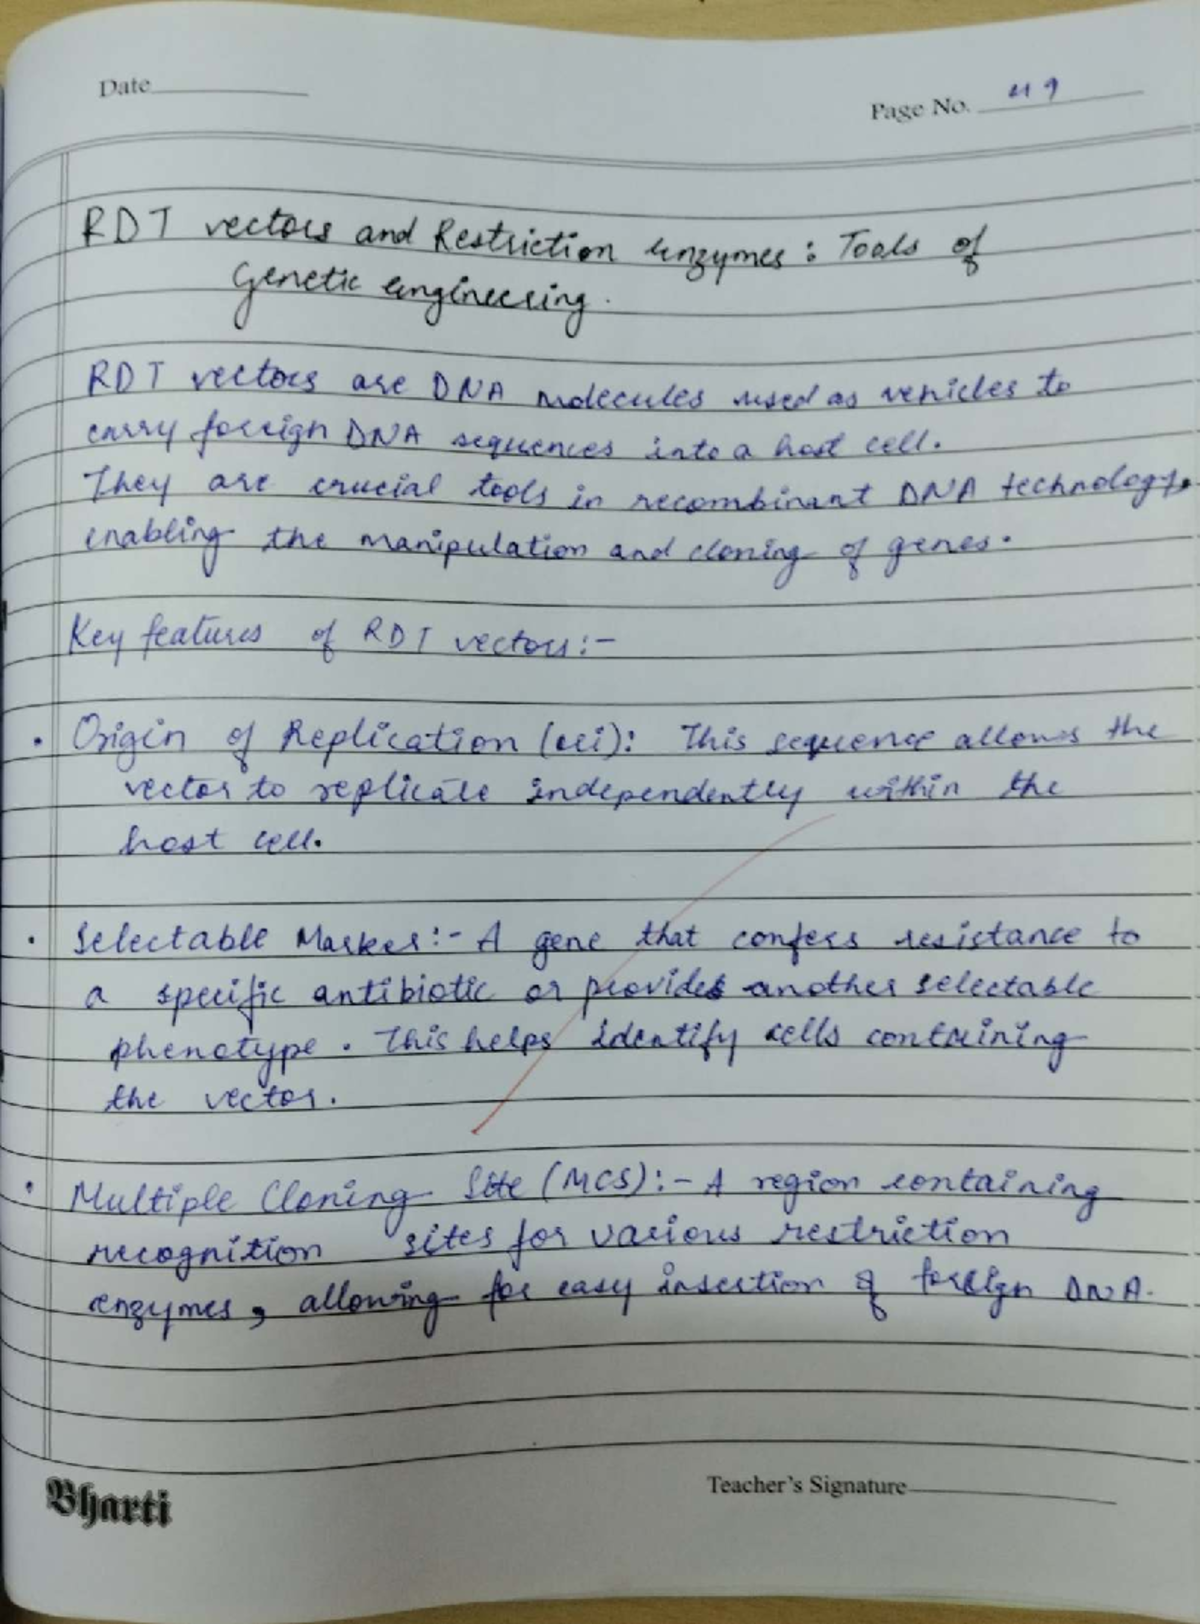 Date
Page No. 49
RDT vectors and Restriction enzymes : Tools of
Genetic engineering.
RDT vectors are DNA molecules used as vehicles to
carry foreign DNA sequences into a host cell.
They are crucial tools in recombinant DNA technology,
enabling the manipulation and cloning of genes.
Key features of RDT vectors:-
• Origin of Replication (ori): This sequence allows the
vector to replicate independently within the
host cell.
• Selectable Marker:- A gene that confers resistance to
a specific antibiotic or provides another selectable
phenotype. This helps identify cells containing
the vector.
• Multiple Cloning Site (MCS):- A region containing
recognition sites for various restriction
enzymes, allowing for easy insertion of foreign DNA.
Teacher's Signature
Bharti